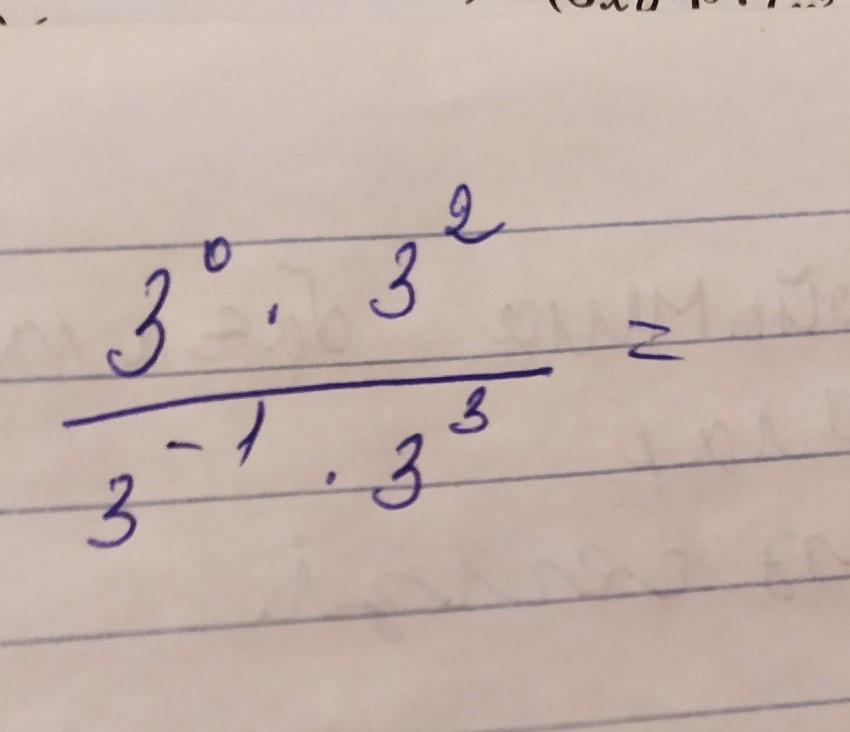 3⁰ · 3² =
3⁻¹ · 3³